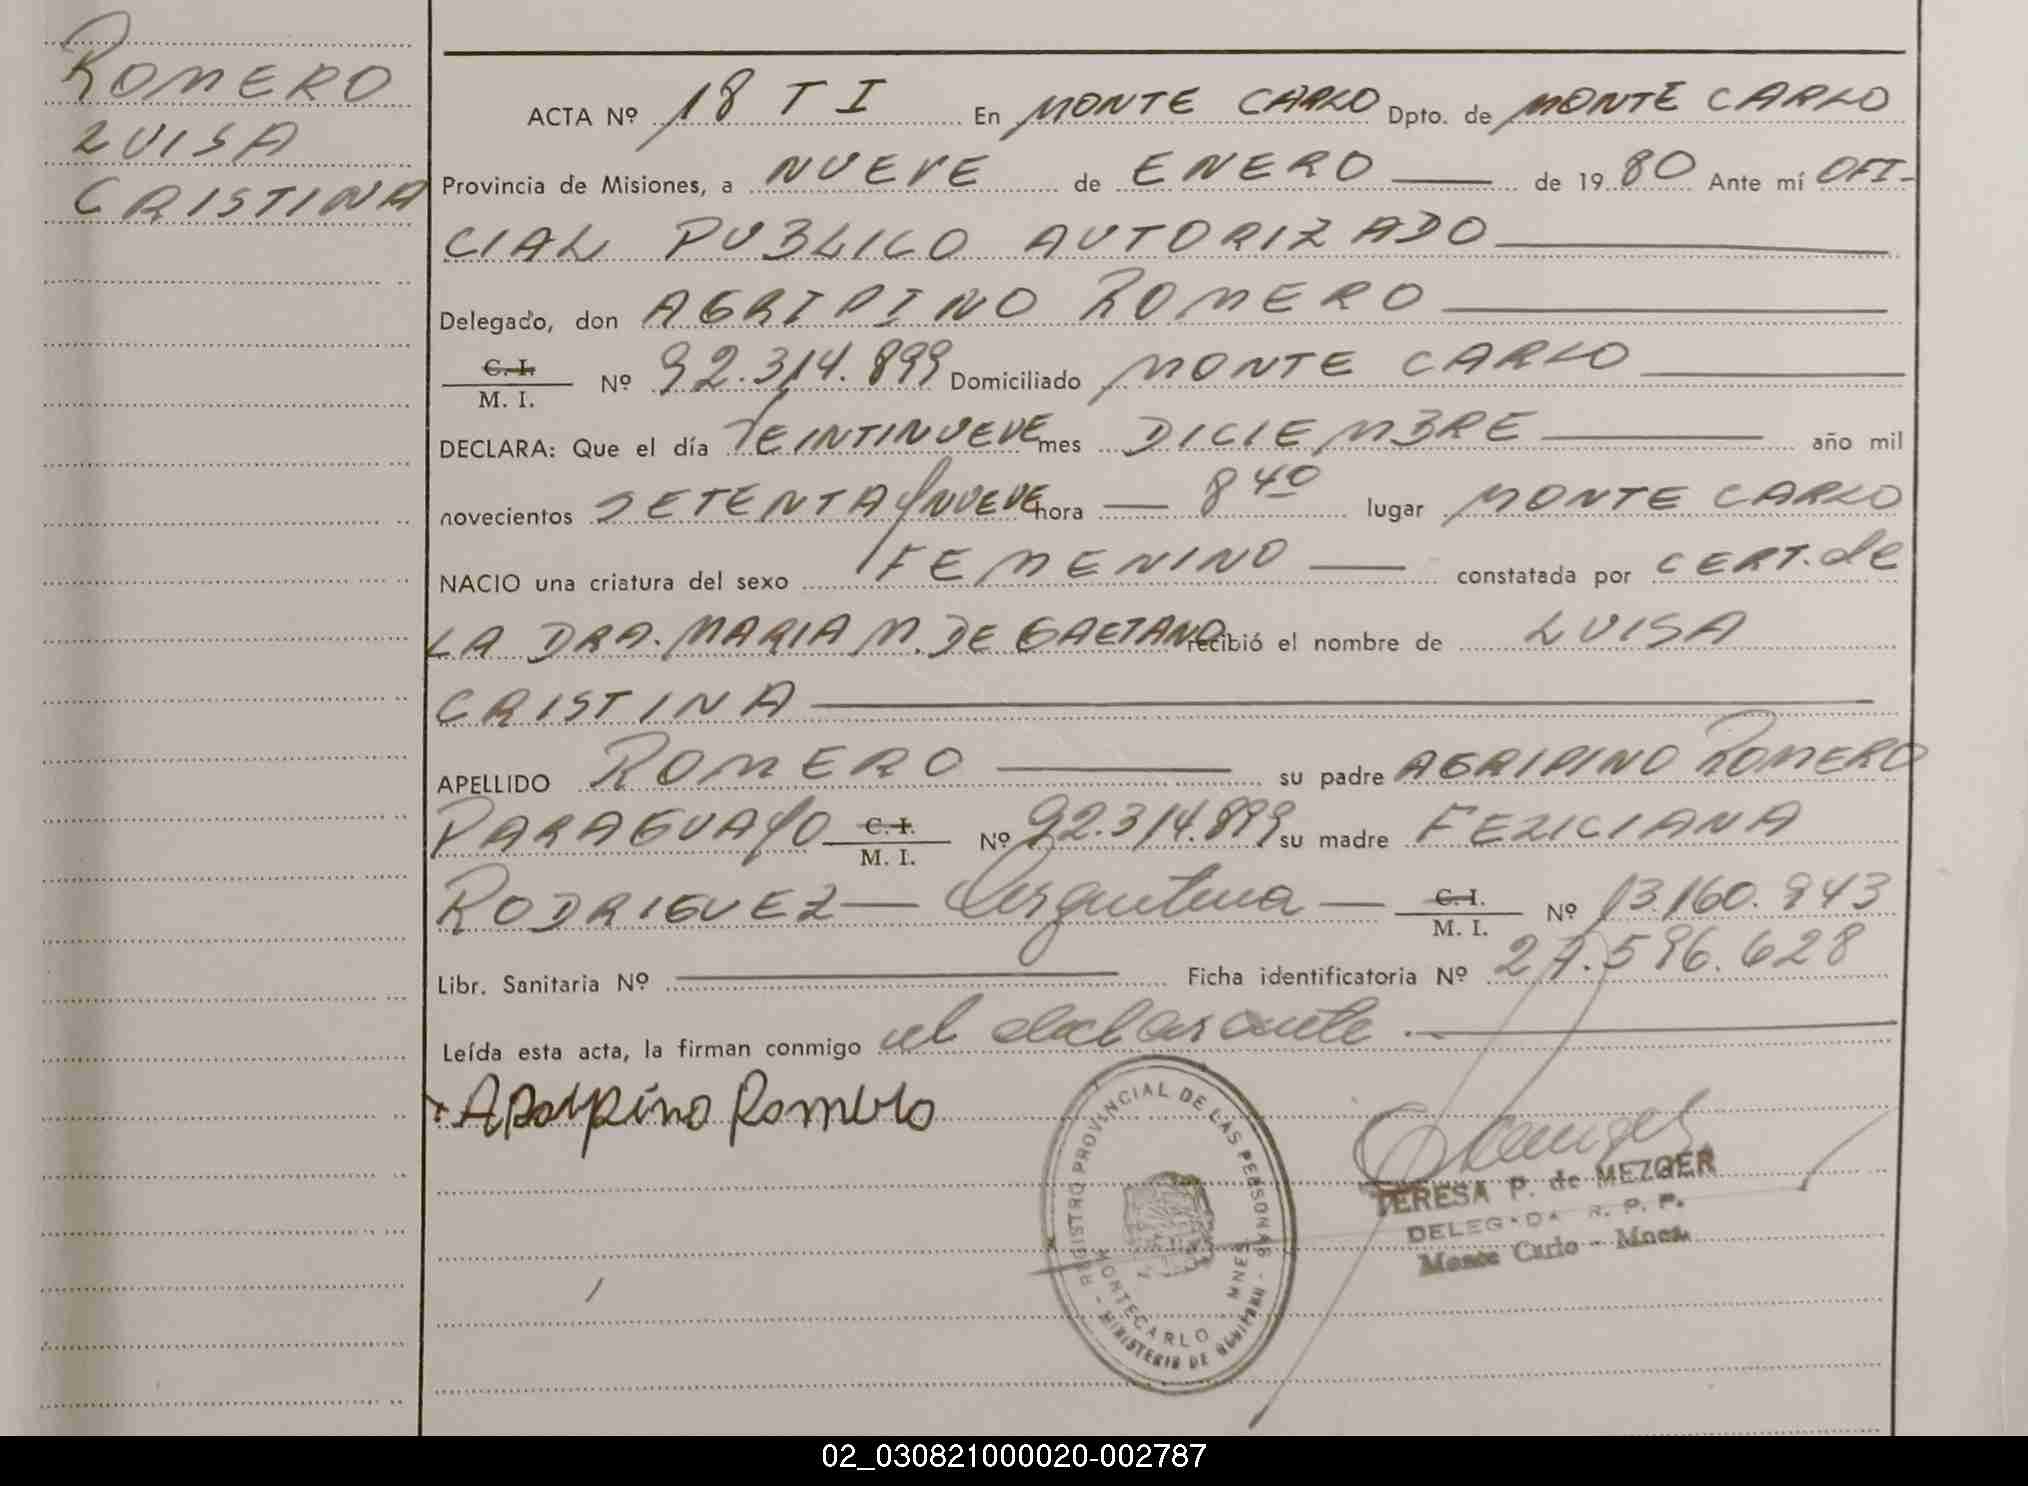 ROMERO
LUISA
CRISTINA
ACTA Nº 18 T I En MONTE CARLO Dpto. de MONTE CARLO
Provincia de Misiones, a NUEVE de ENERO de 1980 Ante mí OFI-
CIAL PUBLICO AUTORIZADO
Delegado, don AGRIPINO ROMERO
C. I.
M. I. Nº 92.314.899 Domiciliado MONTE CARLO
DECLARA: Que el día VEINTINUEVE mes DICIEMBRE año mil
novecientos SETENTA Y NUEVE hora 8 40 lugar MONTE CARLO
NACIO una criatura del sexo FEMENINO constatada por CERT. de
LA DRA. MARIA M. DE GAETANO recibió el nombre de LUISA
CRISTINA
APELLIDO ROMERO su padre AGRIPINO ROMERO
PARAGUAYO C. I. M. I. Nº 92.314.899 su madre FELICIANA
RODRIGUEZ Argentina C. I. M. I. Nº 13.160.943
Libr. Sanitaria Nº Ficha identificatoria Nº 27.596.628
Leída esta acta, la firman conmigo el declarante.
Romero
REGISTRO PROVINCIAL DE LAS PERSONAS
MONTECARLO - MNES
MINISTERIO DE GOBIERNO
TERESA P. de MEZGER
DELEGADA R. P. P.
Monte Carlo - Mnes.
02_030821000020-002787